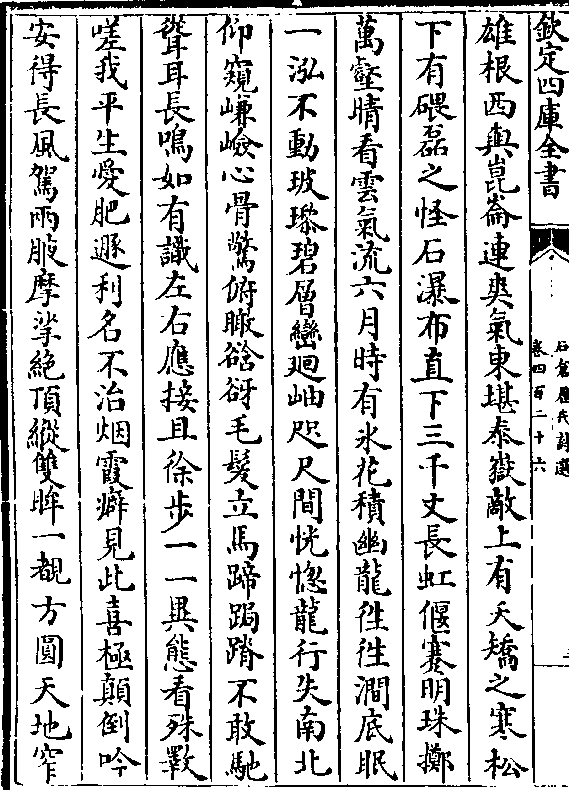 欽定四庫全書
石倉歷代詩選
卷四百二十六
雄根西與崑崙連爽氣東堪泰嶽敵上有夭矯之寒松
下有磈磊之怪石瀑布直下三千丈長虹偃蹇明珠擲
萬壑晴看雲氣流六月時有氷花積幽龍徃徃澗底眠
一泓不動玻瓈碧層巒廻岫咫尺間恍惚龍行失南北
仰窺嵰嶮心骨驚俯瞰谽谺毛髮立馬蹄跼蹐不敢馳
聳耳長鳴如有識左右應接且徐步一一異態看殊斁
嗟我平生愛肥遯利名不治烟霞癖見此喜極顛倒吟
安得長風駕兩腋摩挲絶頂縱雙眸一覩方圓天地窄